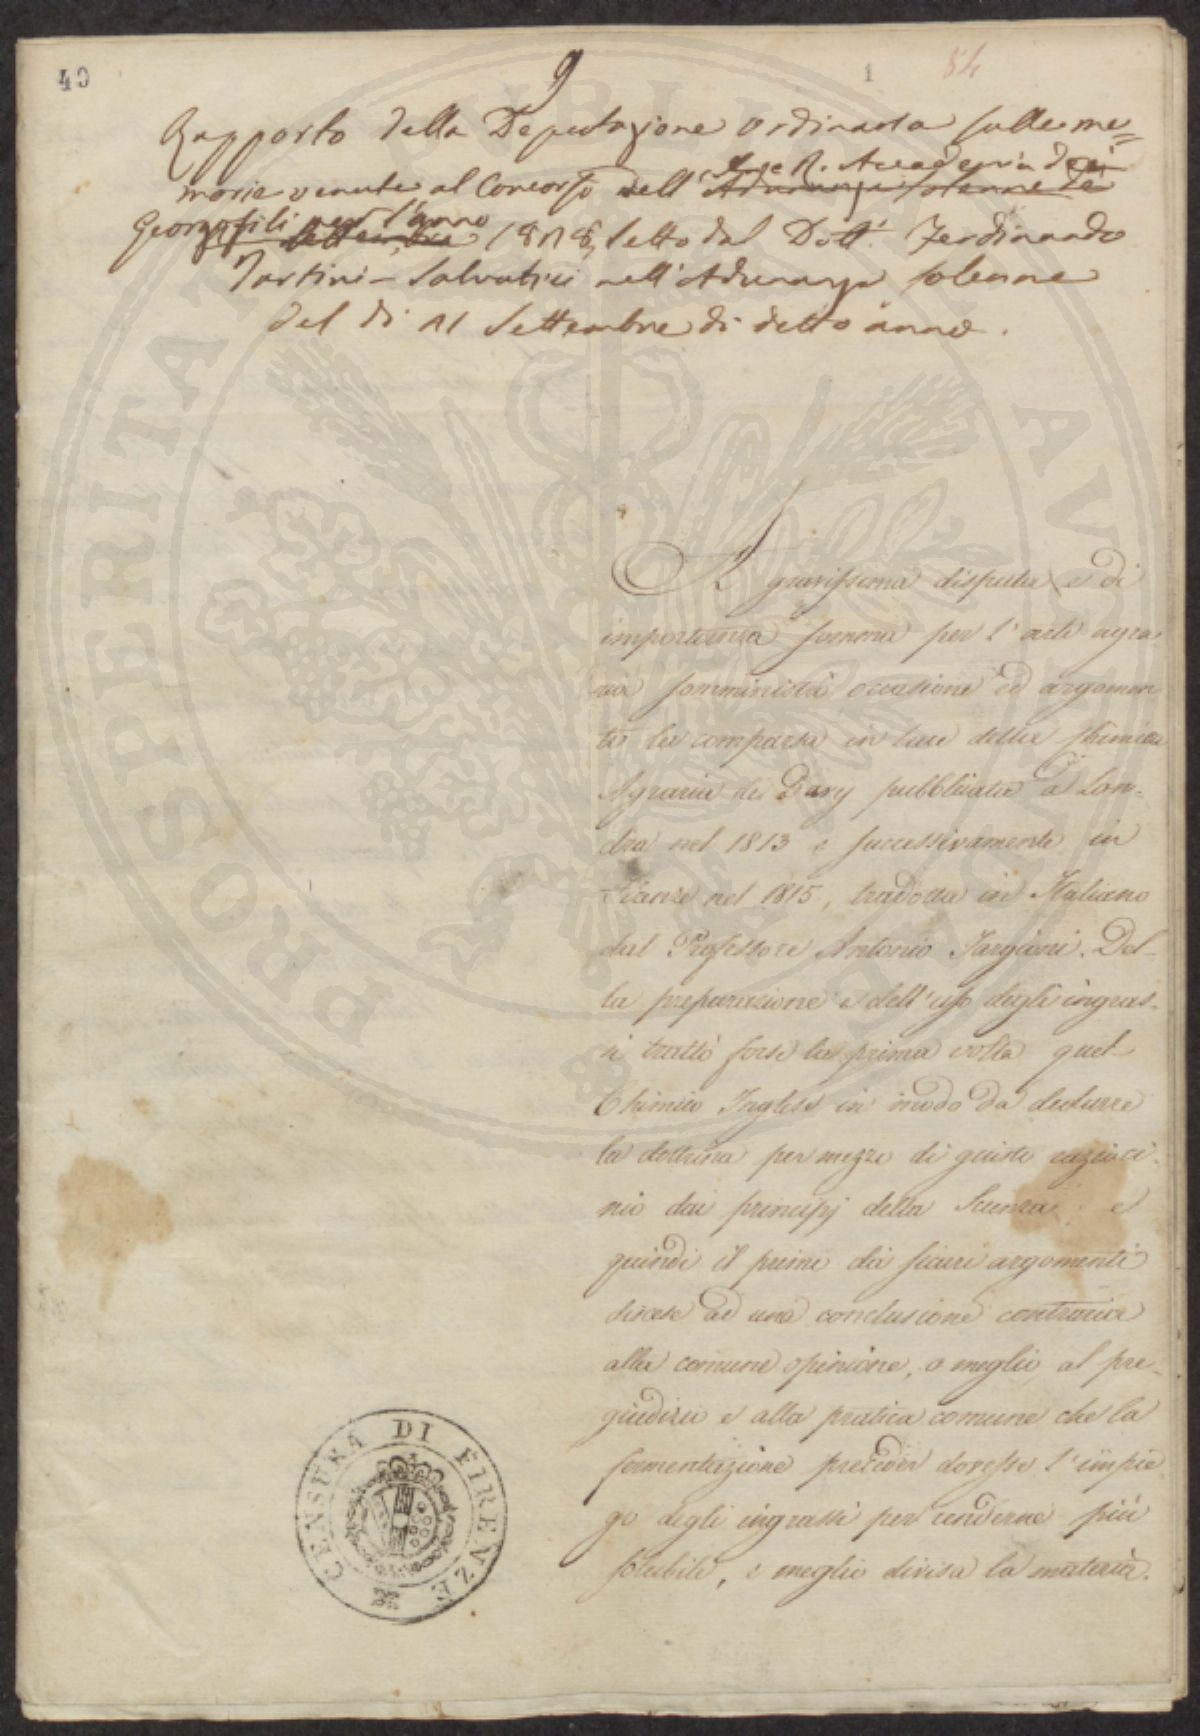 40
9
1
84
Rapporto della Deputazione ordinaria sulle me=
morie venute al Concorso dell' I. e R. Accademia dei
Adunanza solenne de
Georgofili per l'anno
Settembre 1818, letto dal Dott. Ferdinando
Tartini-Salvatici nell'Adunanza solenne
del dì 21 Settembre di detto anno.
A gravissima disputa e di
importanza somma per l'arte agra-
ria somministrò occasione ed argomen-
to la comparsa in luce della Chimica
Agraria di Davy pubblicata a Lon-
dra nel 1813 e successivamente in
Firenze nel 1815, tradotta in Italiano
dal Professore Antonio Targioni. Del-
la preparazione e dell'uso degli ingras-
si trattò forse la prima volta quel
Chimico Inglese in modo da dedurre
la dottrina per mezzo di giusto razioci-
nio dai principj della Scienza: e
quindi il primo da sicuri argomenti
discese ad una conclusione contraria
alla comune opinione, o meglio al pre-
giudizio e alla pratica comune che la
fermentazione preceder dovesse l'impie-
go degli ingrassi per renderne più
solubile, e meglio divisa la materia.
CENSURA DI FIRENZE
PROSPERITATI PUBLICAE AUGENDAE